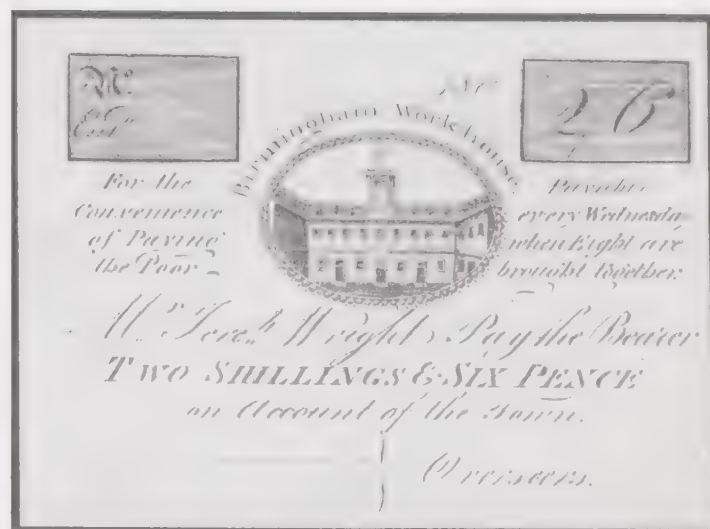 No.
Entd.
No.
2/6
Birmingham Workhouse
For the
Convenience
of Paying
the Poor
Payable
every Wednesday
when Eight are
brought together.
Mr. Jereh. Wright, Pay the Bearer
TWO SHILLINGS & SIX PENCE
on Account of the Town.
Overseers.